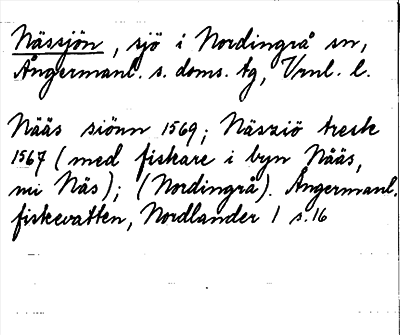 Nässjön, sjö i Nordingrå sn,
Ångermanl. s. doms. tg, Vrnl. l.
Nääs siönn 1569; Näsziö tresk
1567 (med fiskare i byn Nääs,
nu Näs); (Nordingrå). Ångermanl.
fiskevatten, Nordlander 1 s. 16